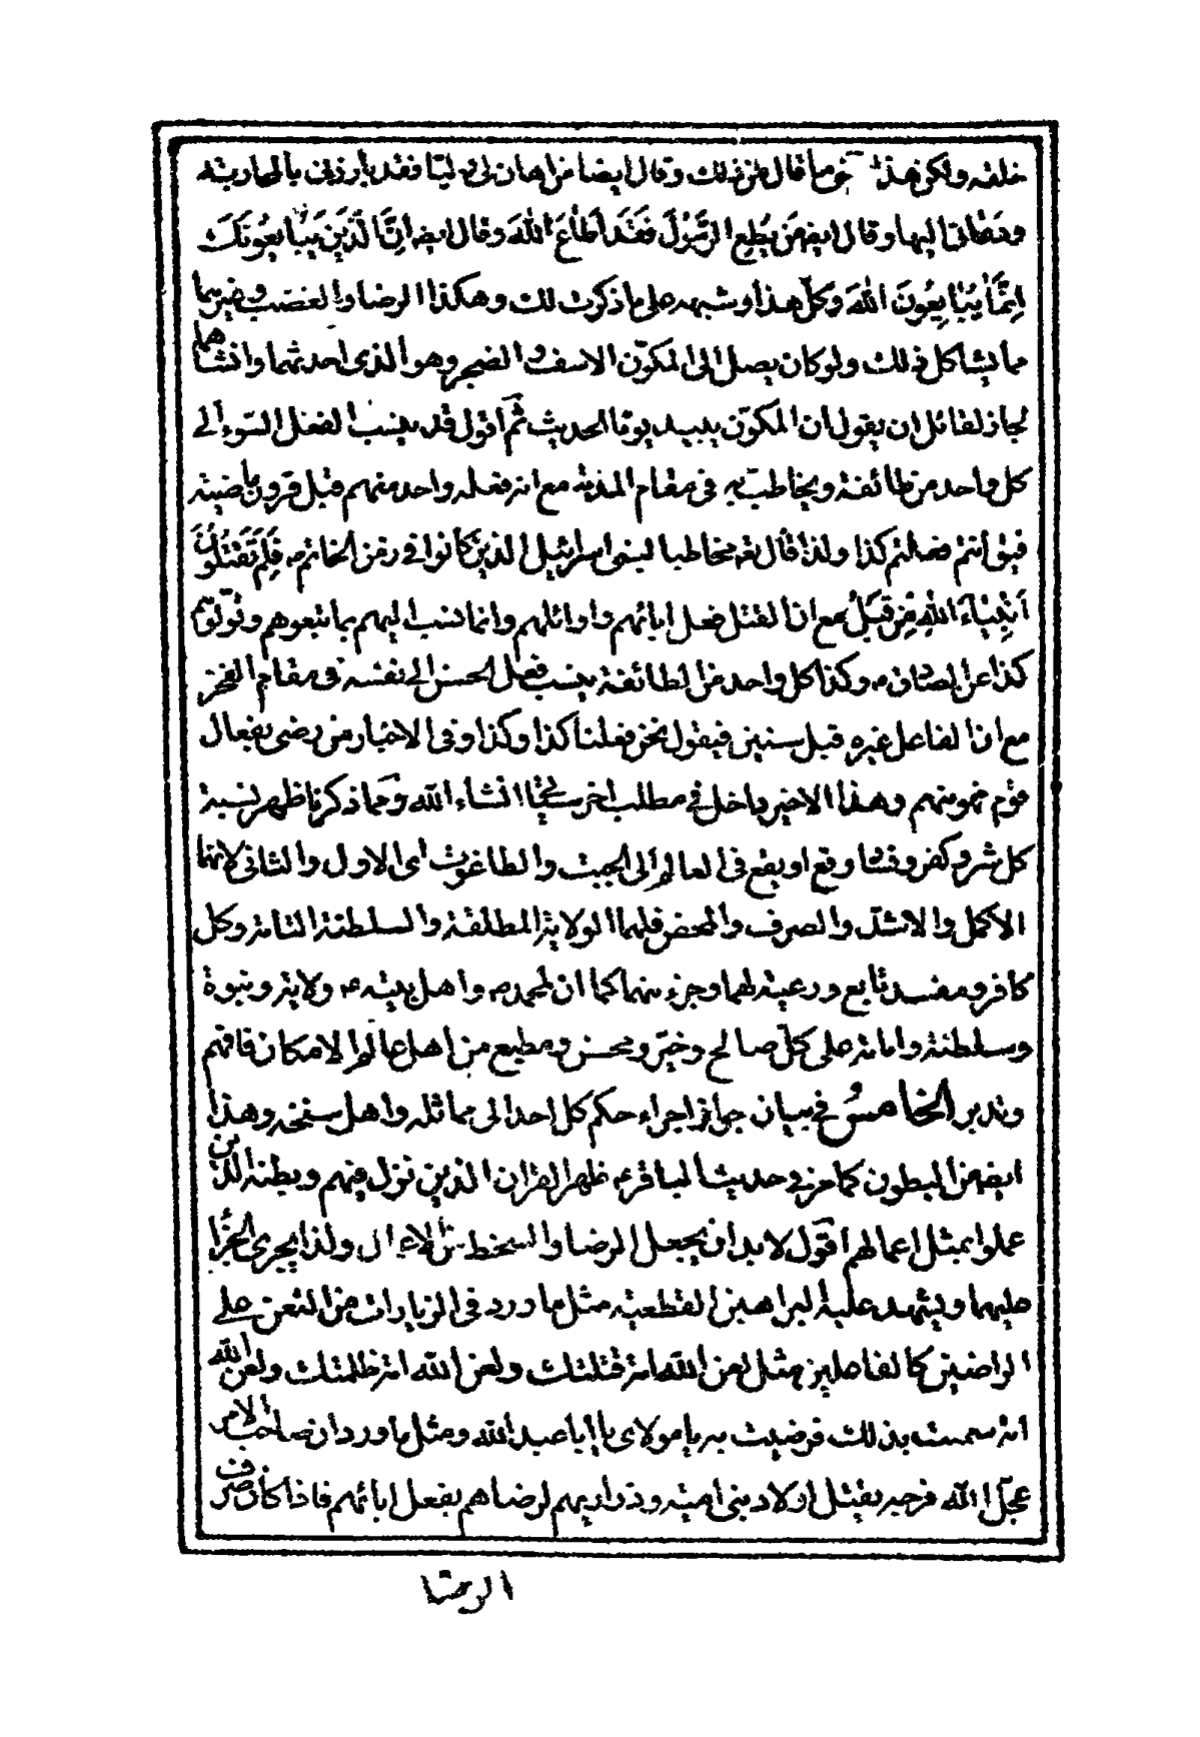 خلقه ولكن هذا معنى ما قال من ذلك وقال ايضا من اهان لي وليا فقد بارزنى بالمحاربة
ودعانى اليها وقال ايضه مَن يُطِعِ الرَّسُولَ فَقَد اَطاعَ اللهَ وقال ايضه اِنَّ الَّذينَ يُبايِعُونَكَ
اِنَّمَا يُبايِعُونَ اللهَ وكلّ هذا وشبهه على ما ذكرت لك وهكذا الرضا والغضب وغيرهما
مما يشاكل ذلك ولو كان يصل الى المكوّن الاسف والضجر وهو الذى احدثهما وانشأهما
لجاز لقائل ان يقول ان المكوّن يبيد يوما الحديث ثم اقول قد ينسب الفعل السوء الى
كل واحد من طائفة ويخاطب به فى مقام المذمة مع انه فعله واحد منهم قبل قرون ماضية
فيق انتم فعلتم كذا ولذا قال تعه مخاطبا لبنى اسرائيل الذين كانوا فى زمن الخاتم ص فَلِمَ تَقتُلُونَ
اَنبِياءَ اللهِ مِن قَبلُ مع ان القتل فعل ابائهم واوائلهم وانما نسب اليهم بما تبعوهم وتولوهم
كذا عن الصادق ع وكذا كل واحد من الطائفة ينسب فعل الحسن الى نفسه فى مقام الفخر
مع ان الفاعل غيره قبل سنين فيقول نحن فعلنا كذا وكذا وفى الاخبار من رضى بفعال
قوم فهو منهم وهذا الاخير داخل فى مطلب اخر سيجئ انشاء الله ومما ذكرنا ظهر نسبة
كل شر وكفر وفساد وقع او يقع فى العالم الى الجبت والطاغوت اى الاول والثانى لانهما
الاكمل والاشدّ والصرف والمحض فلهما الولاية المطلقة والسلطنة التامة وكل
كافر ومفسد تابع ورعية لهما وجزء منهما كما ان لمحمد ص واهل بيته ع ولاية ونبوة
وسلطنة وامامة على كلّ صالح وخيّر ومحسن ومطيع من اهل عالم الامكان فافهم
وتدبر الخامسُ فى بيان جواز اجراء حكم كل احد الى مماثله واهل سنخه وهذا
ايضه من البطون كما مر فى حديث الباقر ع ظهر القران الذين نزل فيهم وبطنه الذين
عملوا بمثل اعمالهم اقول لا بد ان يجعل الرضا والسخط من الاعمال ولذا يجرى الجزاء
عليهما ويشهد عليه البراهين القطعية مثل ما ورد فى الزيارات من اللعن على
الراضين كالفاعلين مثل لعن الله امة قتلتك ولعن الله امة ظلمتك ولعن الله
امة سمعت بذلك فرضيت به يا مولاى يا ابا عبد الله ومثل ما ورد ان صاحب الامر
عجّل الله فرجه يقتل اولاد بنى امية وذراريهم لرضاهم بفعل ابائهم فاذا كان صرف
الرضا